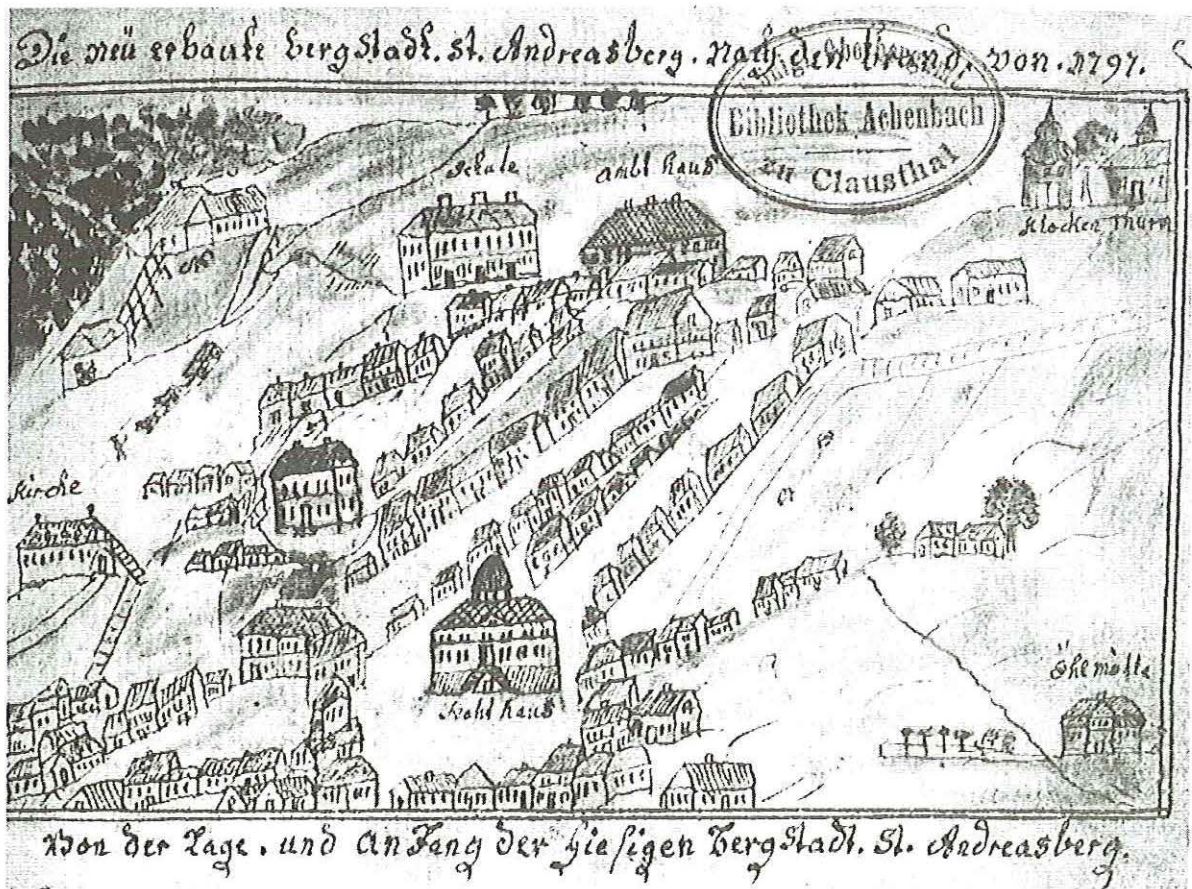 Die neü erbaute bergStadt. St. Andreasberg. Nach den brand. von. 1797.
Bibliothek Achenbach
zu Clausthal
Schule
Ambt haus
Klocken Thurm
Kirche
Raht haus
Öhlmülle
Von der Lage. und Anfang der hiesigen bergStadt. St. Andreasberg.